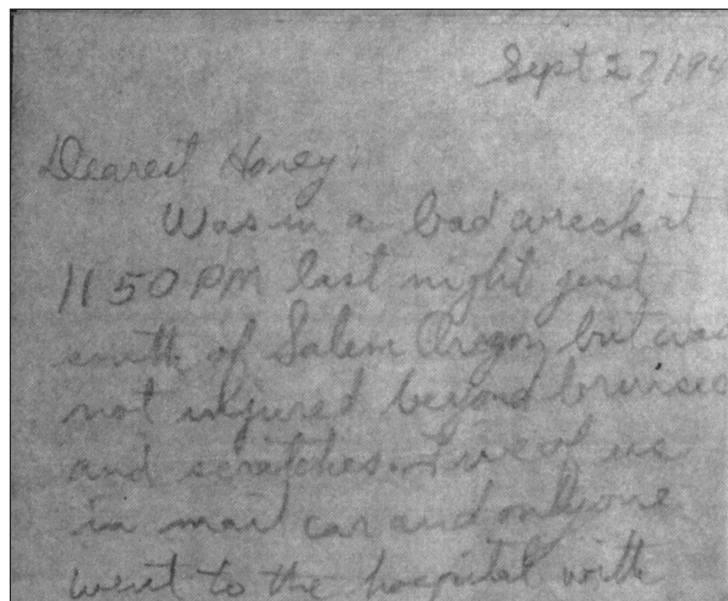 Sept 27, 194
Dearest Honey:
Was in a bad wreck at
11 50 PM last night just
south of Salem Oregon, but was
not injured beyond bruises
and scratches. Five of us
in mail car and only one
went to the hospital with